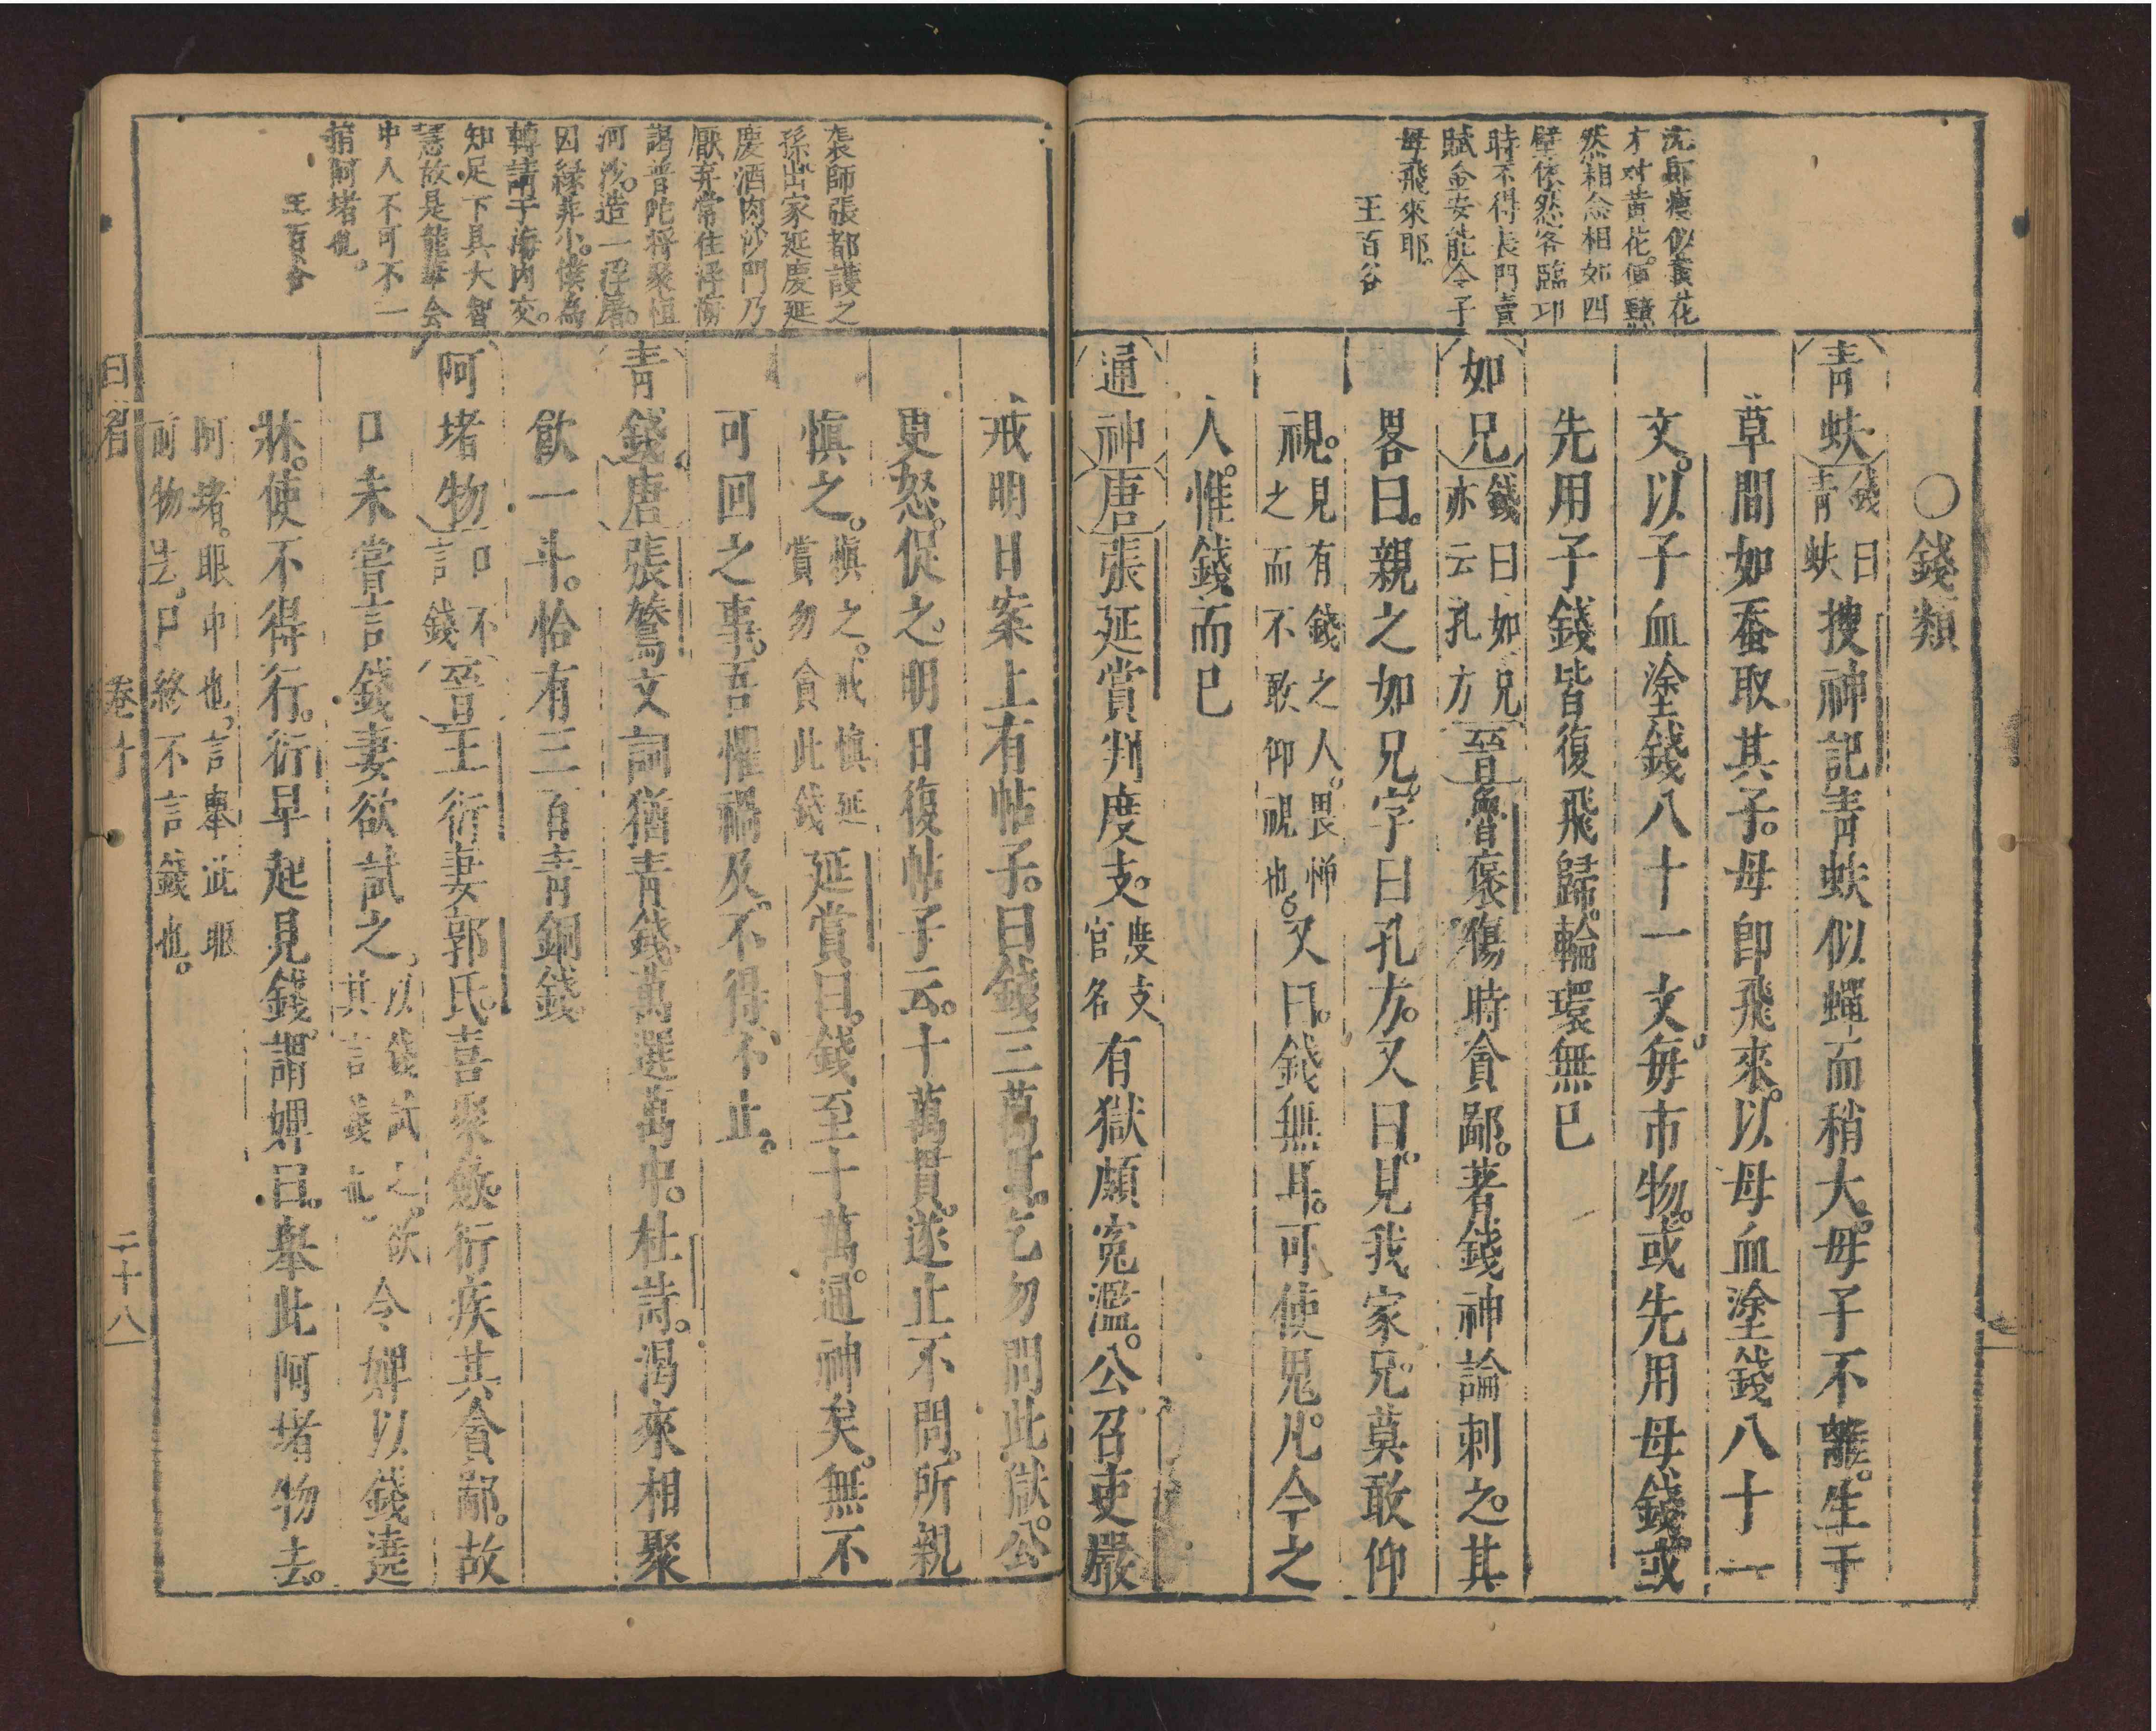 沈郎瘦似黃花
才對黃花便黯
然相念相如四
壁依然客臨卭
時不得長門賣
賦金安能令子
母飛來耶
王百谷
○錢類
青蚨 錢曰青蚨 搜神記青蚨似蟬而稍大。母子不離。生于
草間如蚕取其子。母即飛來。以母血塗錢八十一
文。以子血塗錢八十一文每市物。或先用母錢。或
先用子錢皆復飛歸。輪環無已
如兄 錢曰如兄亦云孔方 晉魯褒傷時貪鄙。著錢神論刺之。其
畧曰。親之如兄。字曰孔方。又曰。見我家兄。莫敢仰
視。見有錢之人。畏憚之而不敢仰視也。又曰。錢無耳。可使鬼。凡今之
人。惟錢而已
通神 唐張延賞判度支。度支官名有獄頗寃濫。公召吏嚴
戒明日案上有帖子。曰錢三萬貫。乞勿問此獄。公
更怒。促之。明日復帖子云。十萬貫。遂止不問。所親
慎之。慎之。戒慎延賞勿貪此錢延賞曰。錢至十萬。通神矣。無不
可回之事。吾懼禍及。不得不止。
青錢 唐張鷟文詞猶青錢萬選萬中。杜詩。渴來相聚
飲一斗。恰有三百青銅錢。
阿堵物 口不言錢 晉王衍妻郭氏。喜聚斂。衍疾其貪鄙。故
口未嘗言錢妻欲試之。以錢試之。欲其言錢也。令婢以錢遶
牀。使不得行。衍早起見錢。謂婢曰。舉此阿堵物去。
阿堵。眼中也。言舉此眼
前物去。口終不言錢也。
裴師張都護之
孫。出家延慶延
慶酒肉沙門乃
厭弃常住浮海
謁普陀將聚恒
河沙。造一浮屠。
因緣非小。僕為
轉請于海内交。
知足下具大智
慧故是龍華会
中人不可不一
捐阿堵也。
王百谷
卷十
二十八